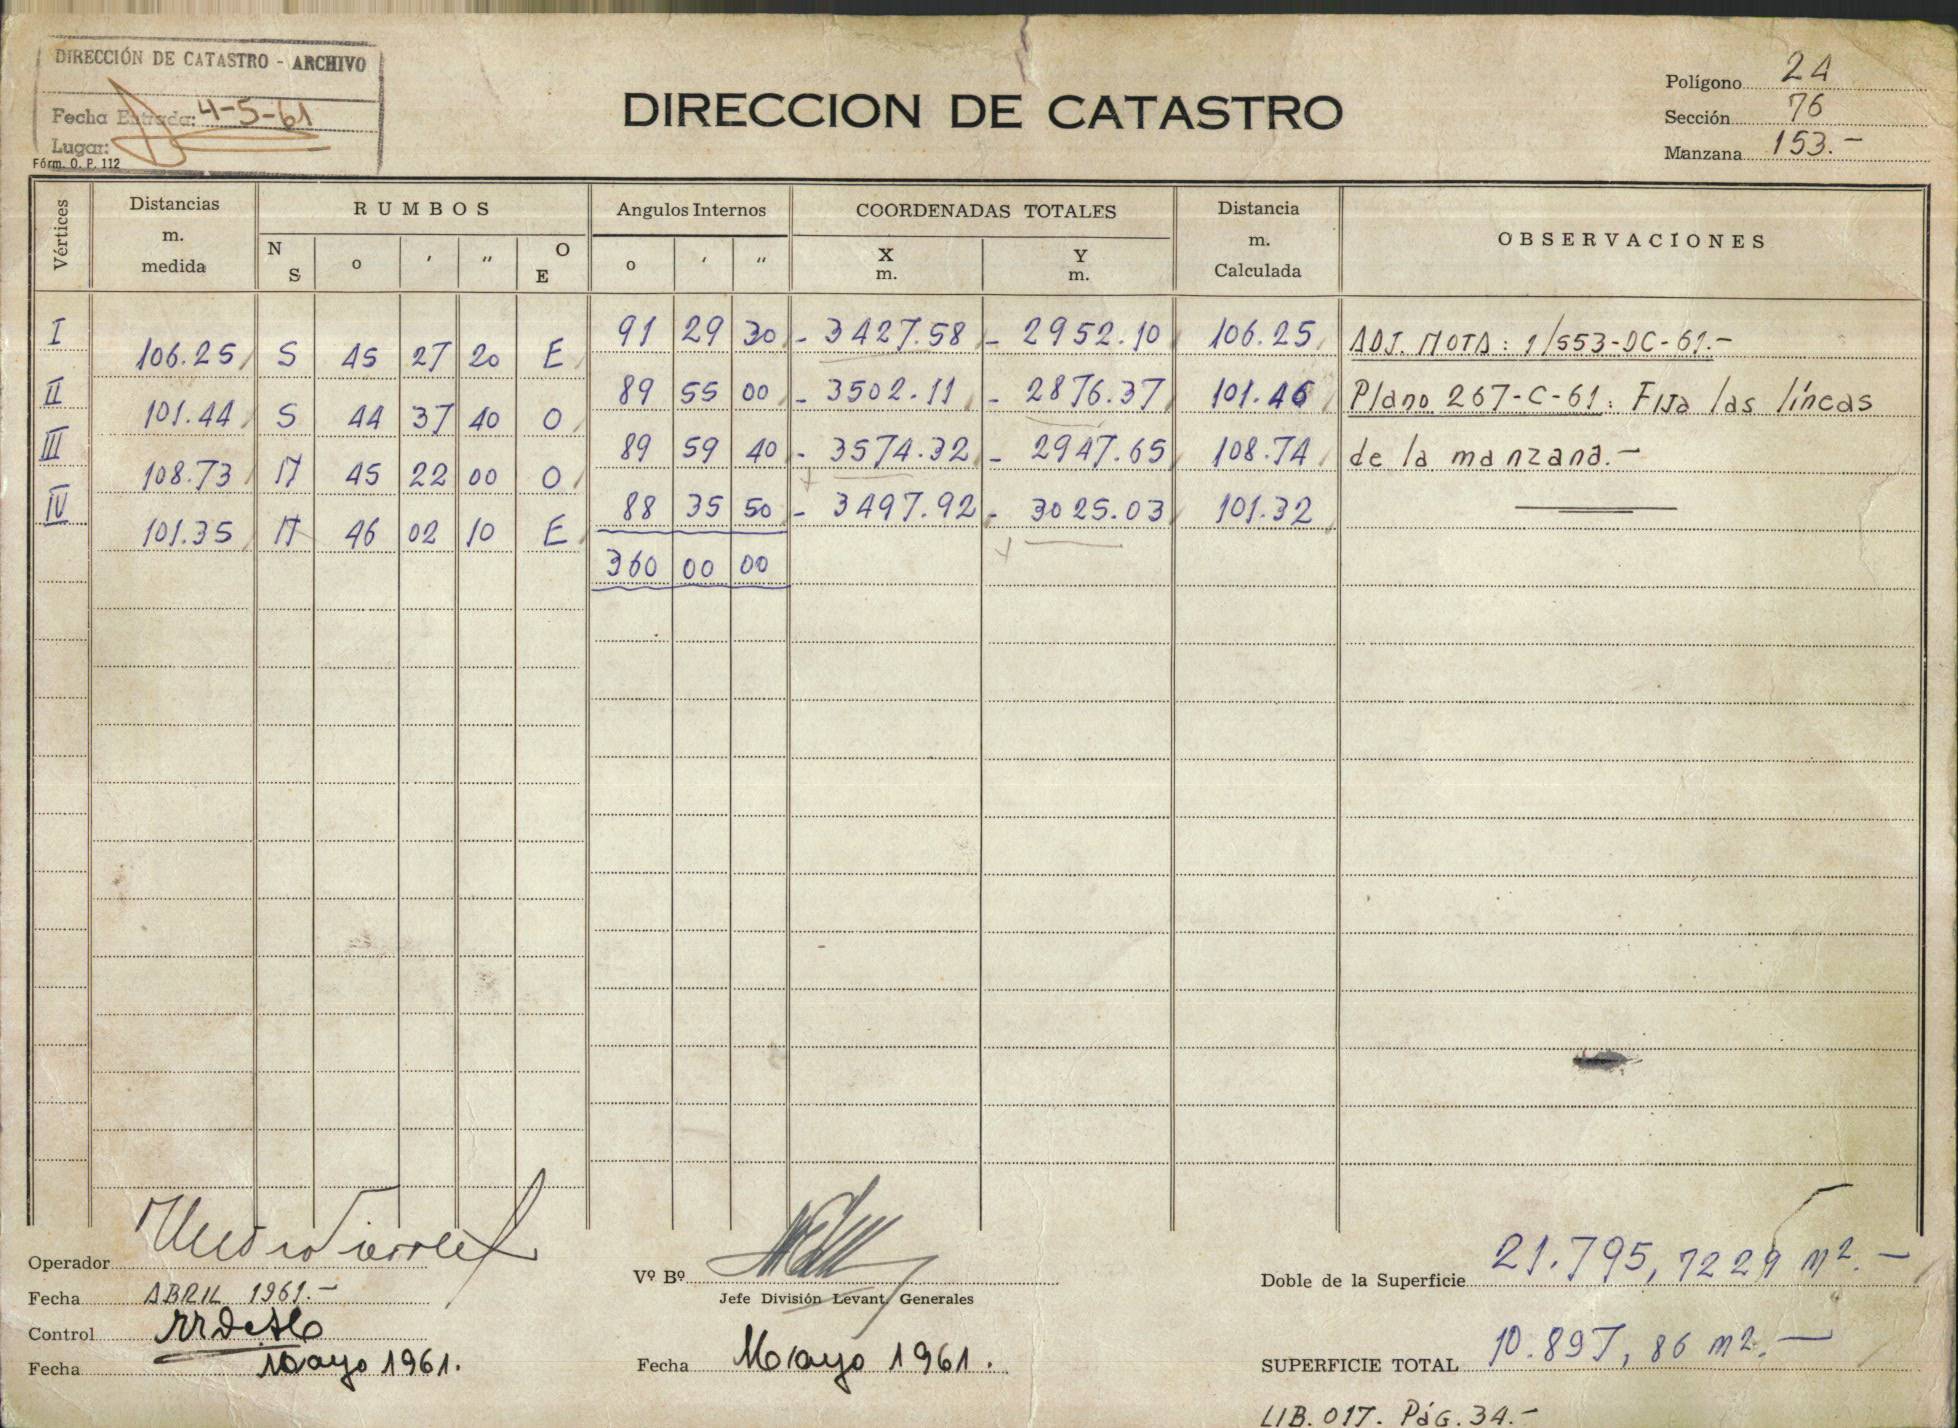 DIRECCIÓN DE CATASTRO - ARCHIVO
Fecha Entrada: 4-5-61
Lugar:
Fórm. O. P. 112
DIRECCION DE CATASTRO
Polígono 24
Sección 76
Manzana 153.-
Vértices
Distancias m. medida
RUMBOS
N S o ' " O E
Angulos Internos
o ' "
COORDENADAS TOTALES
X m. Y m.
Distancia m. Calculada
OBSERVACIONES
I 91 29 30 - 3427.58 - 2952.10 106.25 ADJ. NOTA: 1/553-DC-61.-
106.25 S 45 27 20 E
II 89 55 00 - 3502.11 - 2876.37 101.46 Plano 267-C-61: Fija las líneas
101.44 S 44 37 40 O
III 89 59 40 - 3574.32 - 2947.65 108.74 de la manzana.-
108.73 N 45 22 00 O
IV 88 35 50 - 3497.92 - 3025.03 101.32
101.35 N 46 02 10 E
360 00 00
Operador
Fecha ABRIL 1961.-
Control
Fecha Mayo 1961.
Vº Bº
Jefe División Levant. Generales
Fecha Mayo 1961.
Doble de la Superficie 21.795,7229 m2.-
SUPERFICIE TOTAL 10.897,86 m2.-
LIB. 017. Pág. 34.-